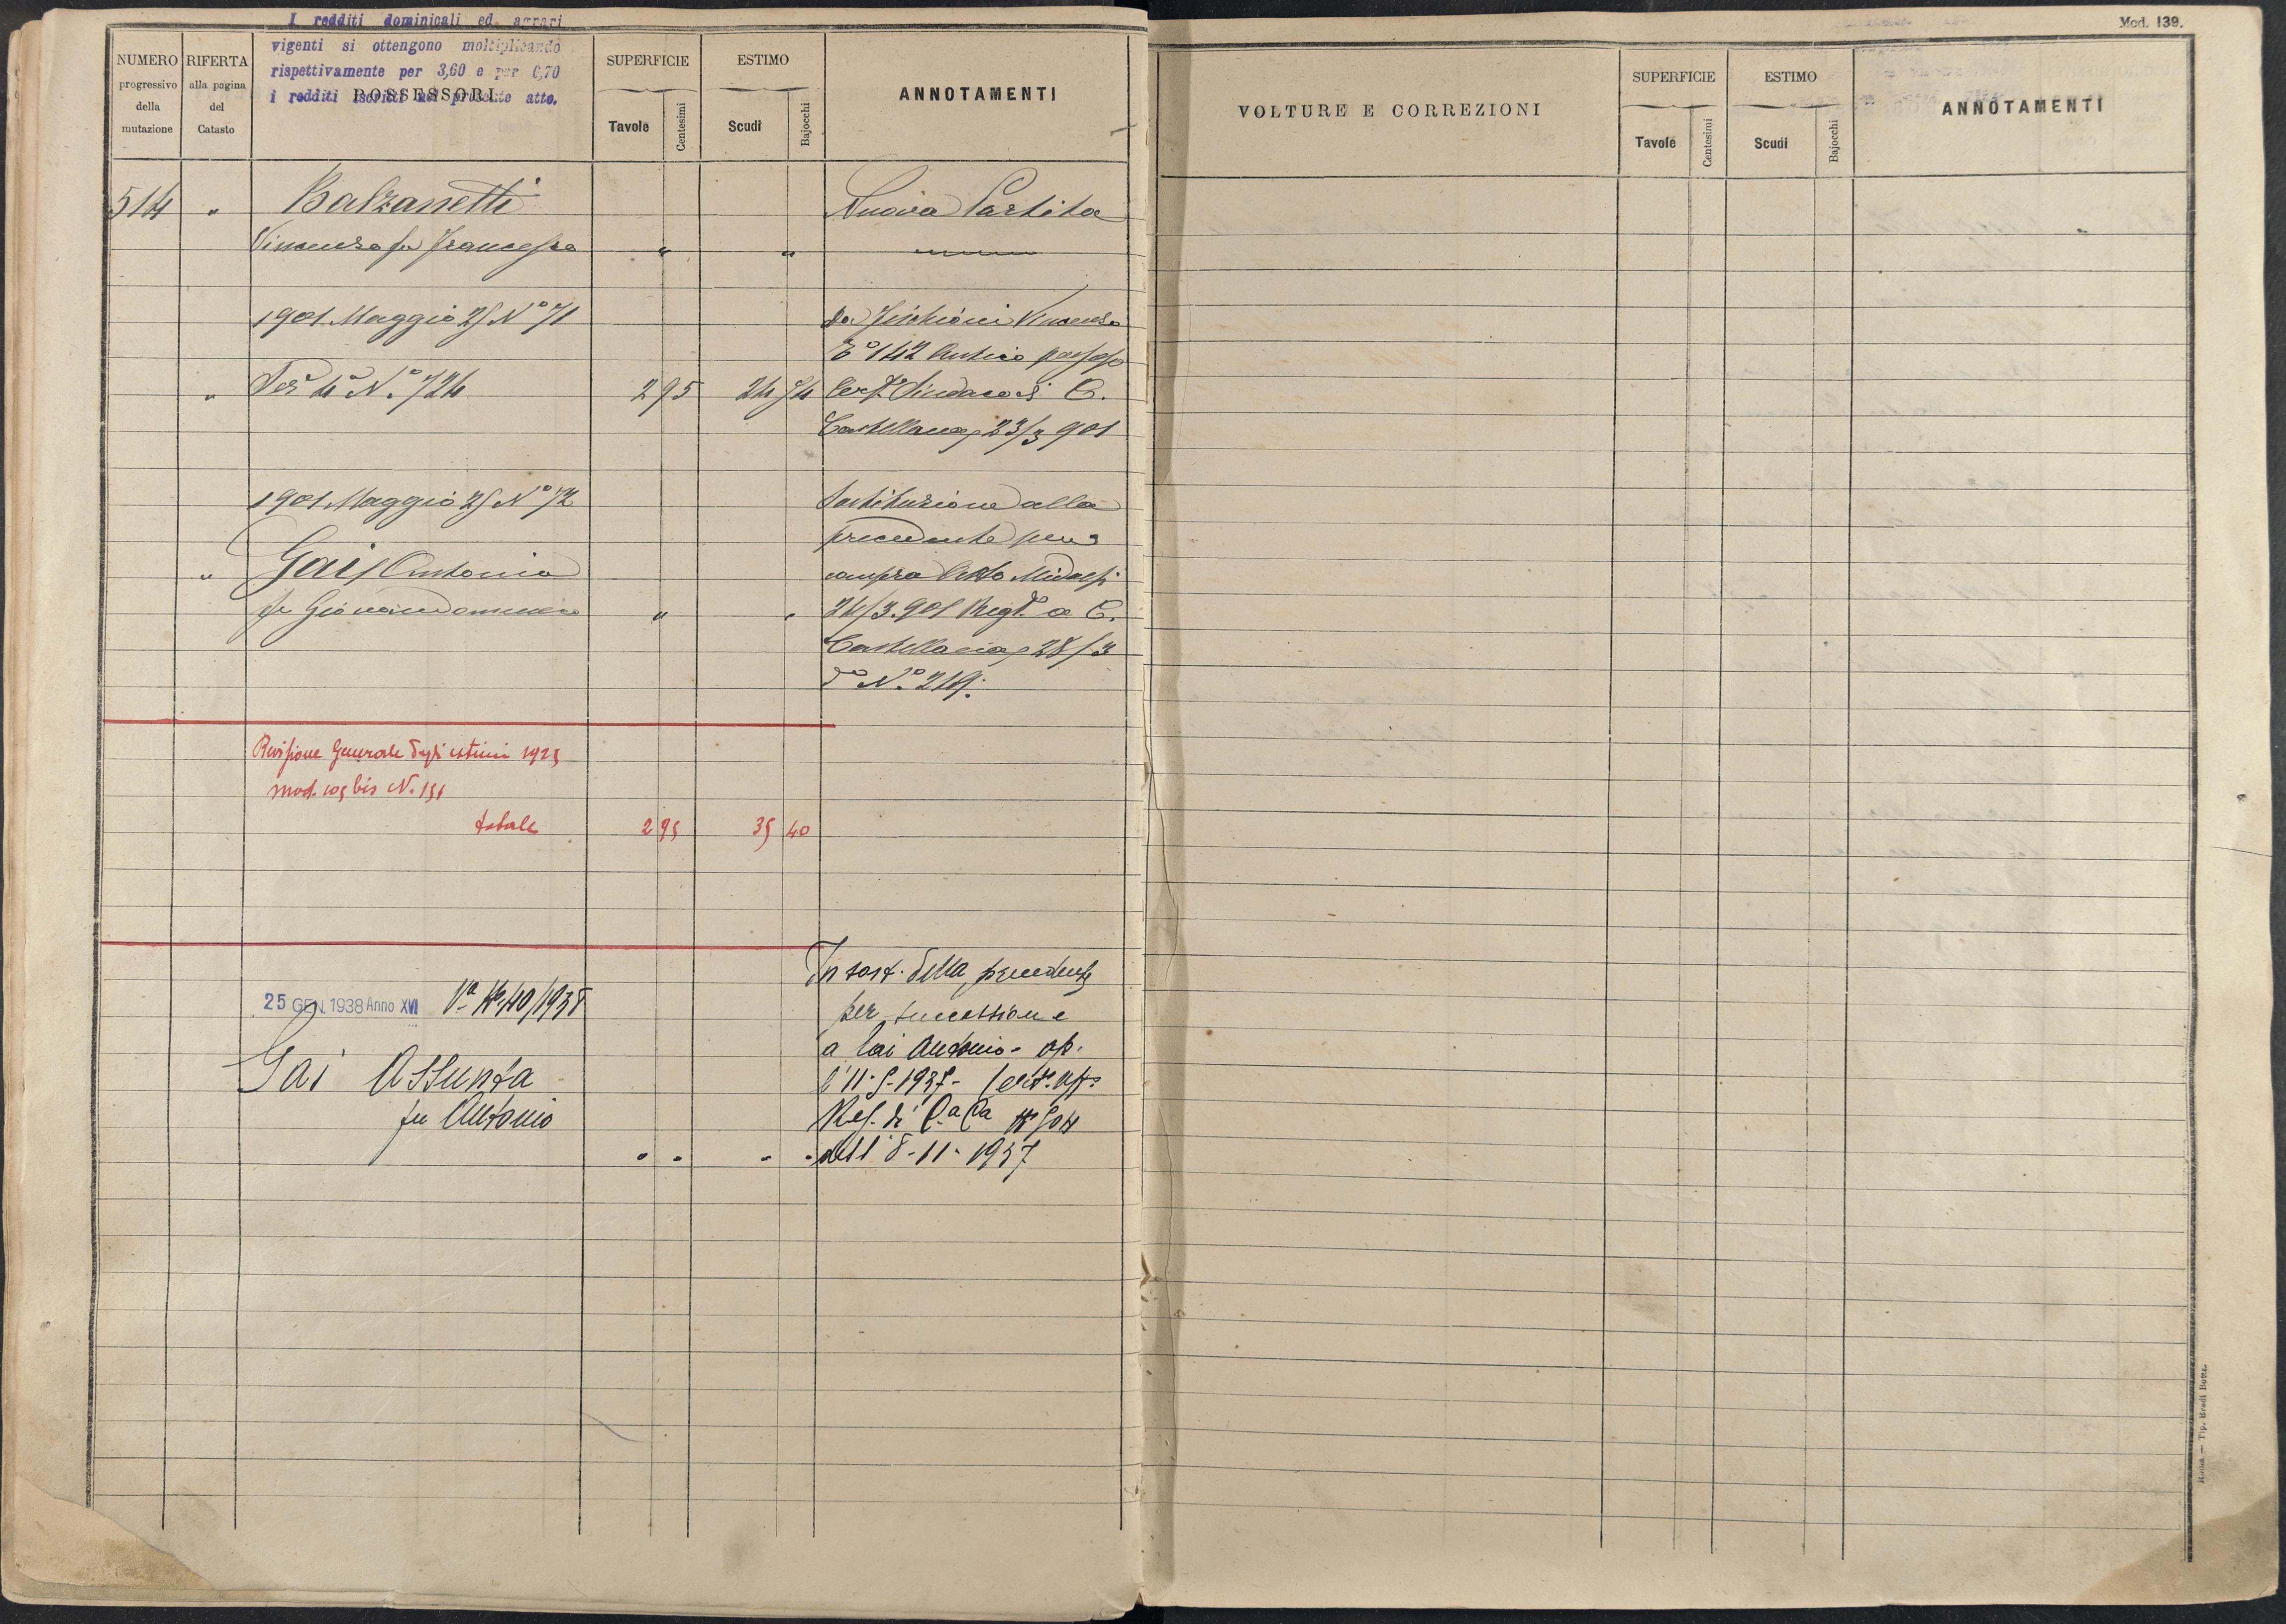 I redditi dominicali ed agrari
vigenti si ottengono moltiplicando
rispettivamente per 3,60 e per 0,70
i redditi iscritti nel presente atto.
Mod. 139.
NUMERO progressivo della mutazione
RIFERTA alla pagina del Catasto
POSSESSORI
SUPERFICIE
Tavole Centesimi
ESTIMO
Scudi Bajocchi
ANNOTAMENTI
VOLTURE E CORREZIONI
SUPERFICIE
Tavole Centesimi
ESTIMO
Scudi Bajocchi
ANNOTAMENTI
514 " Balzanetti Nuova Partita
Vincenzo fu Francesco " "
1901 Maggio 25 N° 71 Da Vincenzo
142 Antico possesso
" N.° 724 2 95 24 54 Cert. Sindaco di C.
Castellana 23/3 901
1901 Maggio 25 N° 72 Sostituzione alla
precedente per
" Gai Antonio compra Atto Midossi
fu Giovandomenico " " 24/3.901 Regt° a C.
Castellana 28/3
d° N.° 219.
Revisione Generale degli estimi 1925
mod. 109 bis N. 151
totale 2 95 35 40
In sost. della precedente
25 GEN. 1938 Anno XVI Vª N° 40/1938 per successione
a Gai Antonio - ap.
Gai Assunta l'11-5-1937- Cert. Uff.
fu Antonio Reg. di Cª Cª N° 504
" " " " dell'8-11-1937
Roma — Tip. Eredi Botta.